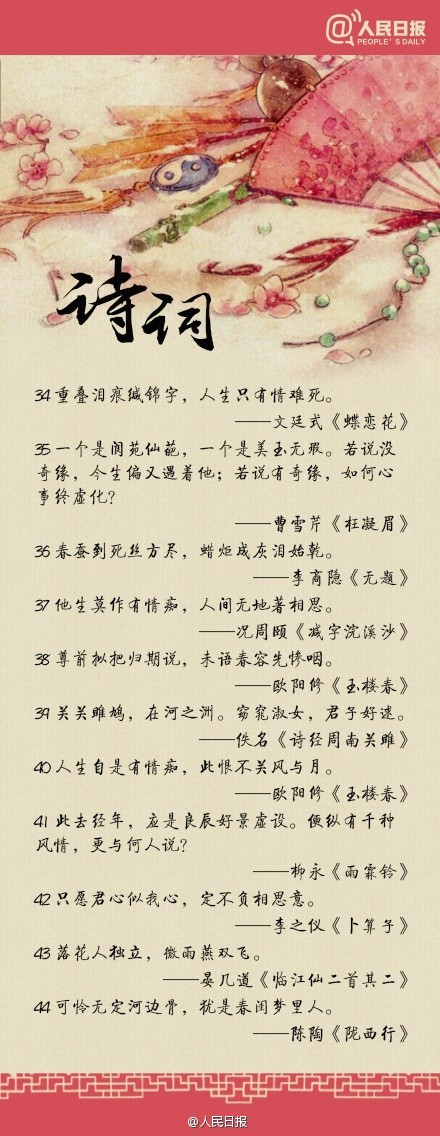 @人民日报
PEOPLE'S DAILY
诗词
34 重叠泪痕缄锦字，人生只有情难死。
——文廷式《蝶恋花》
35 一个是阆苑仙葩，一个是美玉无瑕。若说没
奇缘，今生偏又遇着他；若说有奇缘，如何心
事终虚化？
——曹雪芹《枉凝眉》
36 春蚕到死丝方尽，蜡炬成灰泪始乾。
——李商隐《无题》
37 他生莫作有情痴，人间无地著相思。
——况周颐《减字浣溪沙》
38 尊前拟把归期说，未语春容先惨咽。
——欧阳修《玉楼春》
39 关关雎鸠，在河之洲。窈窕淑女，君子好逑。
——佚名《诗经周南关雎》
40 人生自是有情痴，此恨不关风与月。
——欧阳修《玉楼春》
41 此去经年，应是良辰好景虚设。便纵有千种
风情，更与何人说？
——柳永《雨霖铃》
42 只愿君心似我心，定不负相思意。
——李之仪《卜算子》
43 落花人独立，微雨燕双飞。
——晏几道《临江仙二首其二》
44 可怜无定河边骨，犹是春闺梦里人。
——陈陶《陇西行》
@人民日报